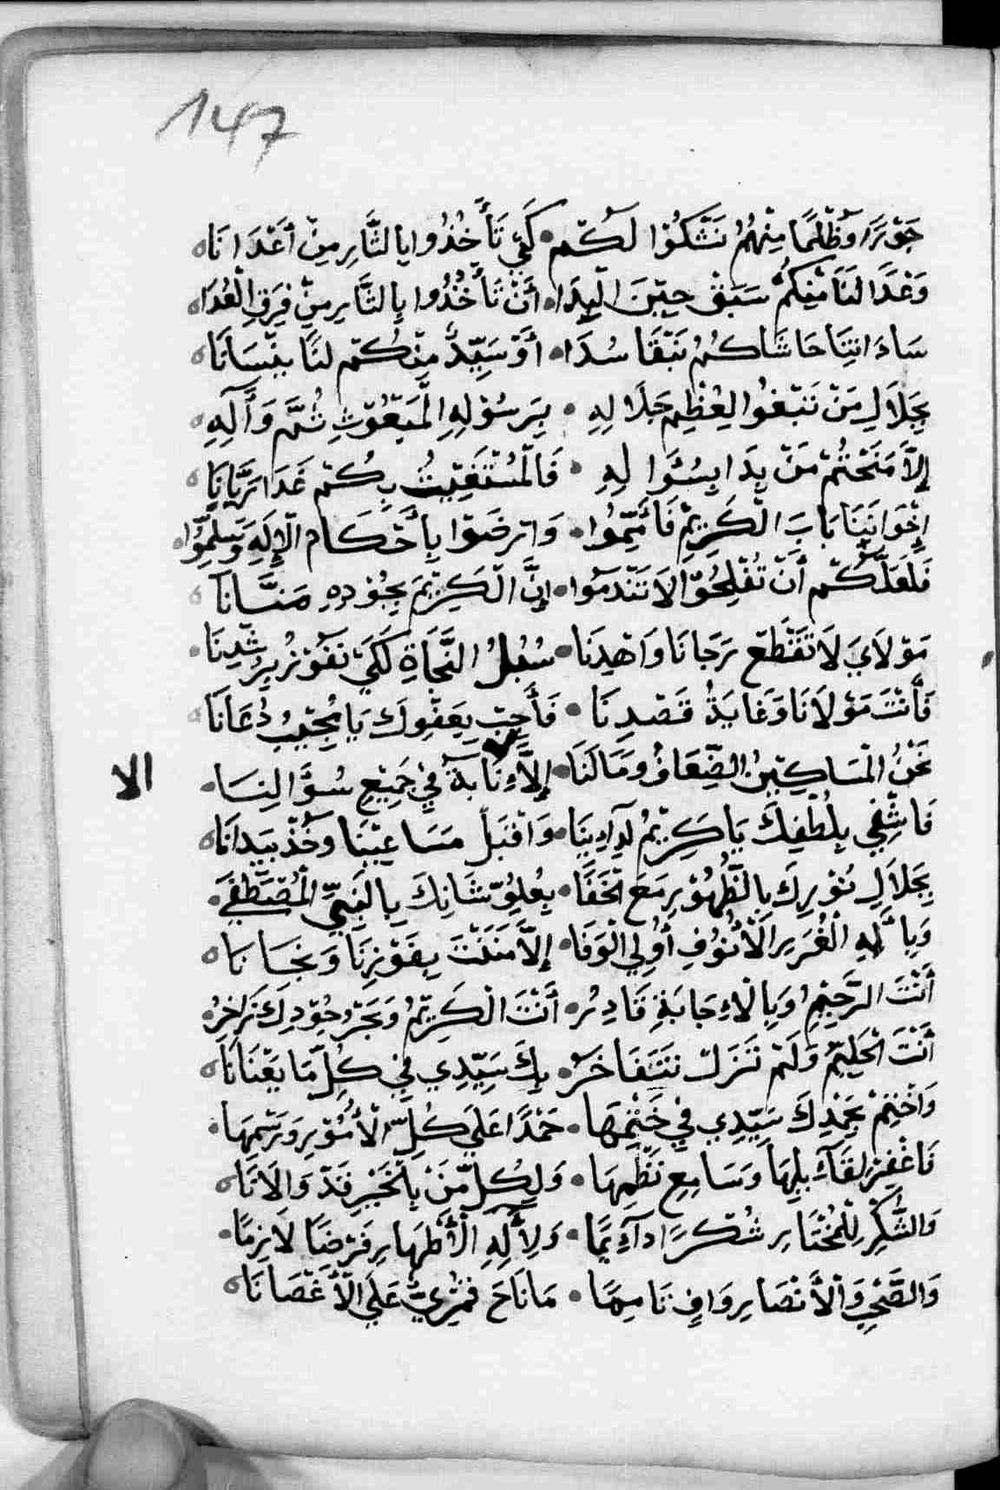 147
جَوْرًا وَظُلْمًا مِنْهُمُ نَشْكُوْا لَكُمْ • كَيْ تَأْخُذُوا بِالثَّارِ مِنْ أَعْدَانَا
وَغَدَا لَنَا مِنْكُمُ سَبَقْ حِيْنَ الْبِدَا • أَنْ تَأْخُذُوا بِالثَّارِ مِنْ فِرَقِ الْعُدَا
سَادَاتِنَا حَاشَاكُمُ نَبْقَا سُدَا • أَوْ سَيِّدٌ مِنْكُمْ لَنَا يَنْسَانَا
بِجَلَالِ مَنْ نَبْغُوا لِعُظْمِ جَلَالِهِ • بِرَسُوْلِهِ الْمَبْعُوْثِ ثُمَّ وَآلِهِ
إِلَّا مَنَحْتُمْ مَنْ بَدَا بِسُؤَالِهِ • فَالْمُسْتَغِيْثُ بِكُمْ غَدَا رَيَّانَا
إِخْوَانَنَا بَابَ الْكَرِيْمِ فَأَمِّمُوا • وَارْضَوْا بِأَحْكَامِ الْإِلَهِ وَسَلِّمُوا
فَلَعَلَّكُمْ أَنْ تُفْلِحُوْا لَا تَنْدَمُوا • إِنَّ الْكَرِيْمَ بِجُوْدِهِ مَنَّانَا
مَوْلَايَ لَا تَقْطَعْ رَجَانَا وَاهْدِنَا • سُبُلُ النَّجَاةِ لَكَيْ نَفُوْزُ بِرُشْدِنَا
فَأَنْتَ مَوْلَانَا وَغَايَةُ قَصْدِنَا • فَأَجِبْ بِعَفْوِكَ يَا مُجِيْبُ دُعَانَا
نَحْنُ الْمَسَاكِيْنُ الضِّعَافُ وَمَا لَنَا • إِلَّا إِنَابَةً فِيْ جَمِيْعِ سُؤَالِنَا
الا
فَاشْفِيْ بِلُطْفِكَ يَا كَرِيْمُ لِدَائِنَا • وَاقْبَلْ مَسَاعِيْنَا وَخُذْ بِيَدَانَا
بِجَلَالِ نُوْرِكَ بِالظُّهُوْرِ مَعَ الْخَفَا • بِعُلُوِّ شَانِكَ بِالنَّبِيِّ الْمُصْطَفَى
وَبِآلِهِ الْغُرَرِ الْأُنُوْفِ أُولِي الْوَفَا • إِلَّا مَنَنْتَ بِفَوْزِنَا وَنَجَانَا
أَنْتَ الرَّحِيْمُ وَبِالْإِجَابَةِ قَادِرُ • أَنْتَ الْكَرِيْمُ وَبَحْرُ جُوْدِكَ زَاخِرُ
أَنْتَ الْحَلِيْمُ وَلَمْ نَزَلْ نَتَفَاخَرُ • بِكَ سَيِّدِي فِي كُلِّ مَا يَعْنَانَا
وَاخْتِمْ بِحَمْدِكَ سَيِّدِي فِيْ خَتْمِهَا • حَمْدًا عَلَى كُلِّ الْأُمُوْرِ وَرَسْمِهَا
فَاغْفِرْ لِقَائِلِهَا وَسَامِعِ نَظْمِهَا • وَلِكُلِّ مَنْ بِالْخَيْرِ قَدْ وَالَانَا
وَالشُّكْرُ لِلْمُخْتَارِ شُكْرًا دَائِمًا • وَلِآلِهِ الْأَطْهَارِ فَرْضًا لَازِمًا
وَالصَّحْبِ وَالْأَنْصَارِ وَافٍ نَامِيًا • مَا نَاحَ قُمْرِيٌّ عَلَى الْأَغْصَانَا